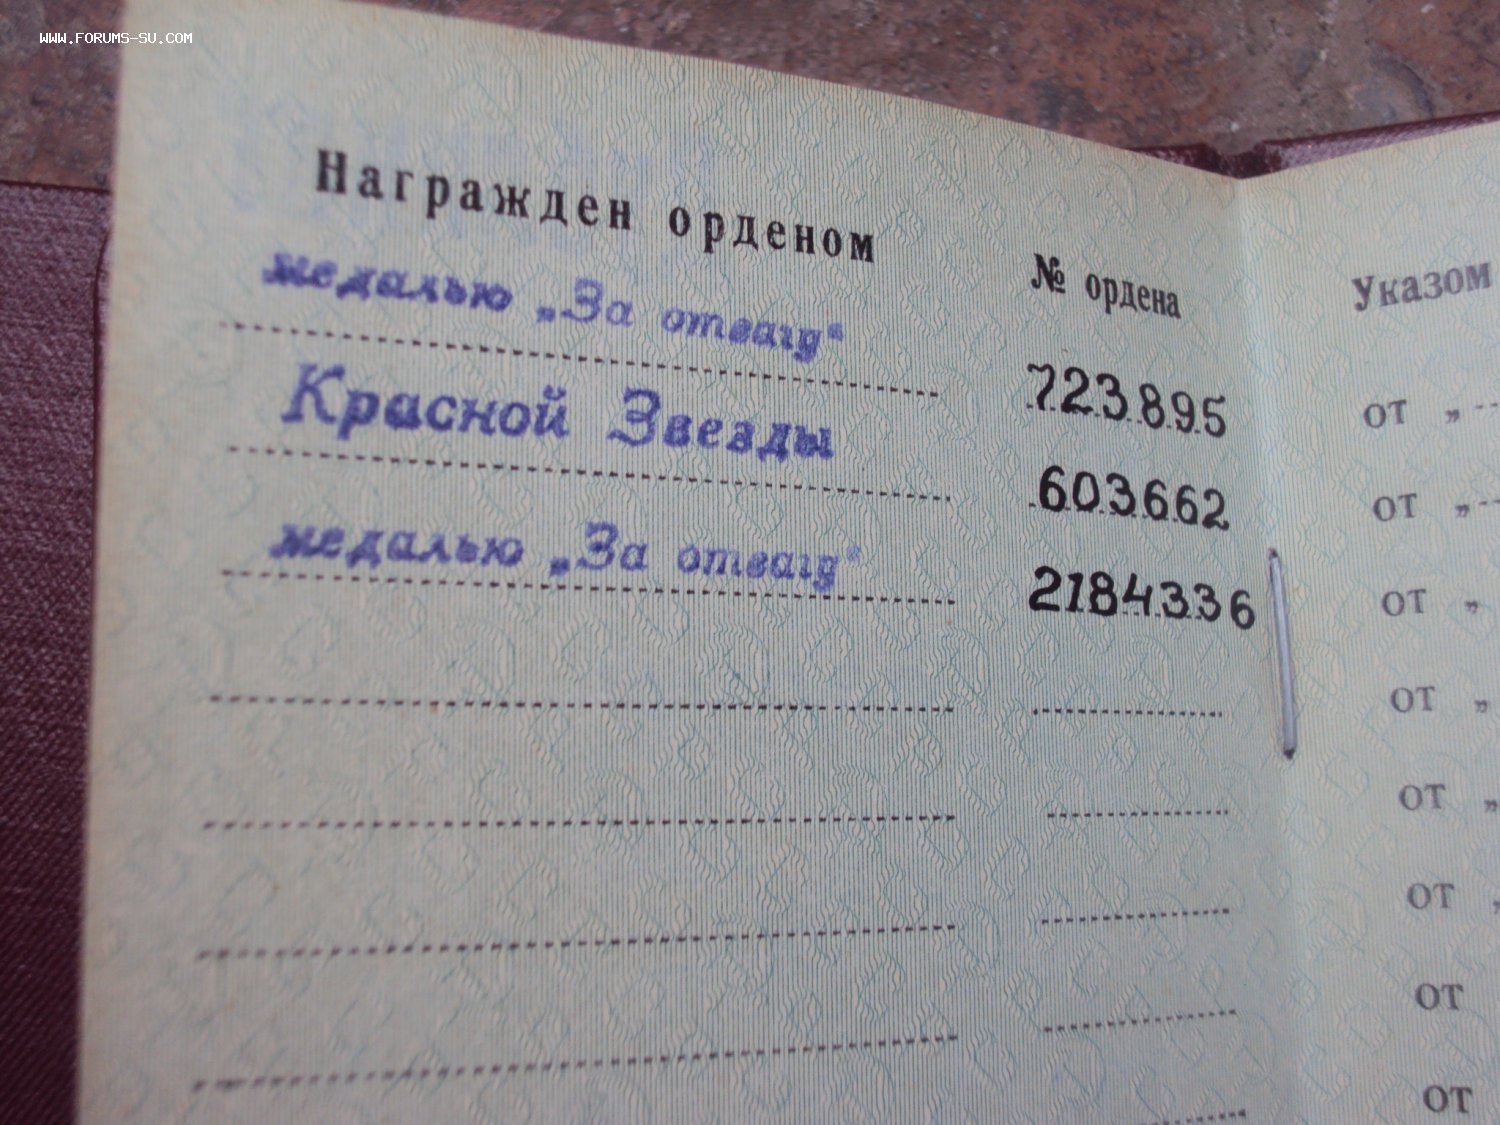 WWW.FORUMS-SU.COM
Награжден орденом № ордена
медалью „За отвагу“ 723895
Красной Звезды 603662
медалью „За отвагу“ 2184336
Указом
от „
от „
от „
от „
от „
от „
от
от